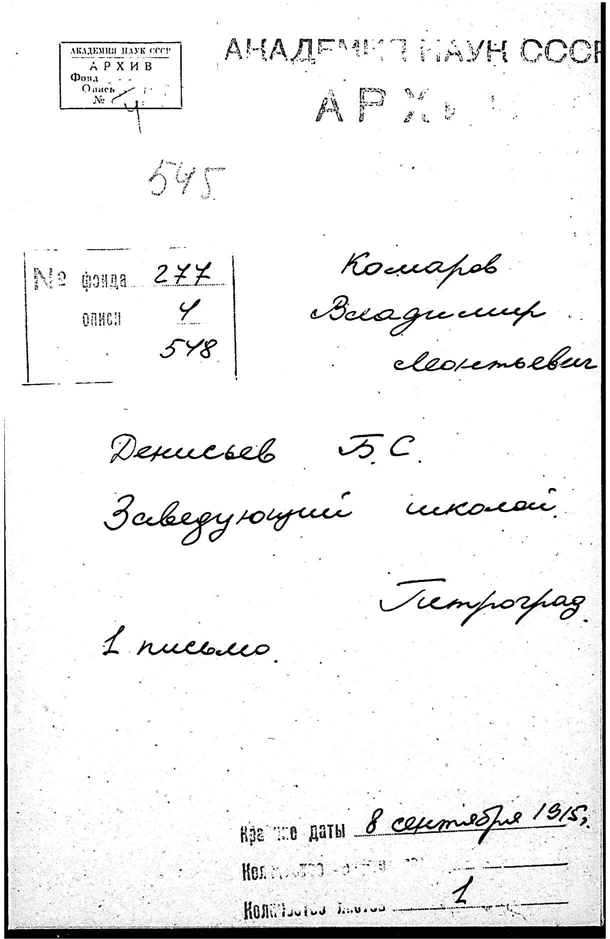 АКАДЕМИЯ НАУК СССР
АРХИВ
Фонд
Опись
№ 4
АКАДЕМИЯ НАУК СССР
АРХИ
545
№ фонда 277
описи 4
548
Комаров
Владимир
Леонтьевич
Денисьев Б.С.
Заведующий школой.
Петроград.
1 письмо.
Крайние даты 8 сентября 1915г.
Количество
Количество листов 1